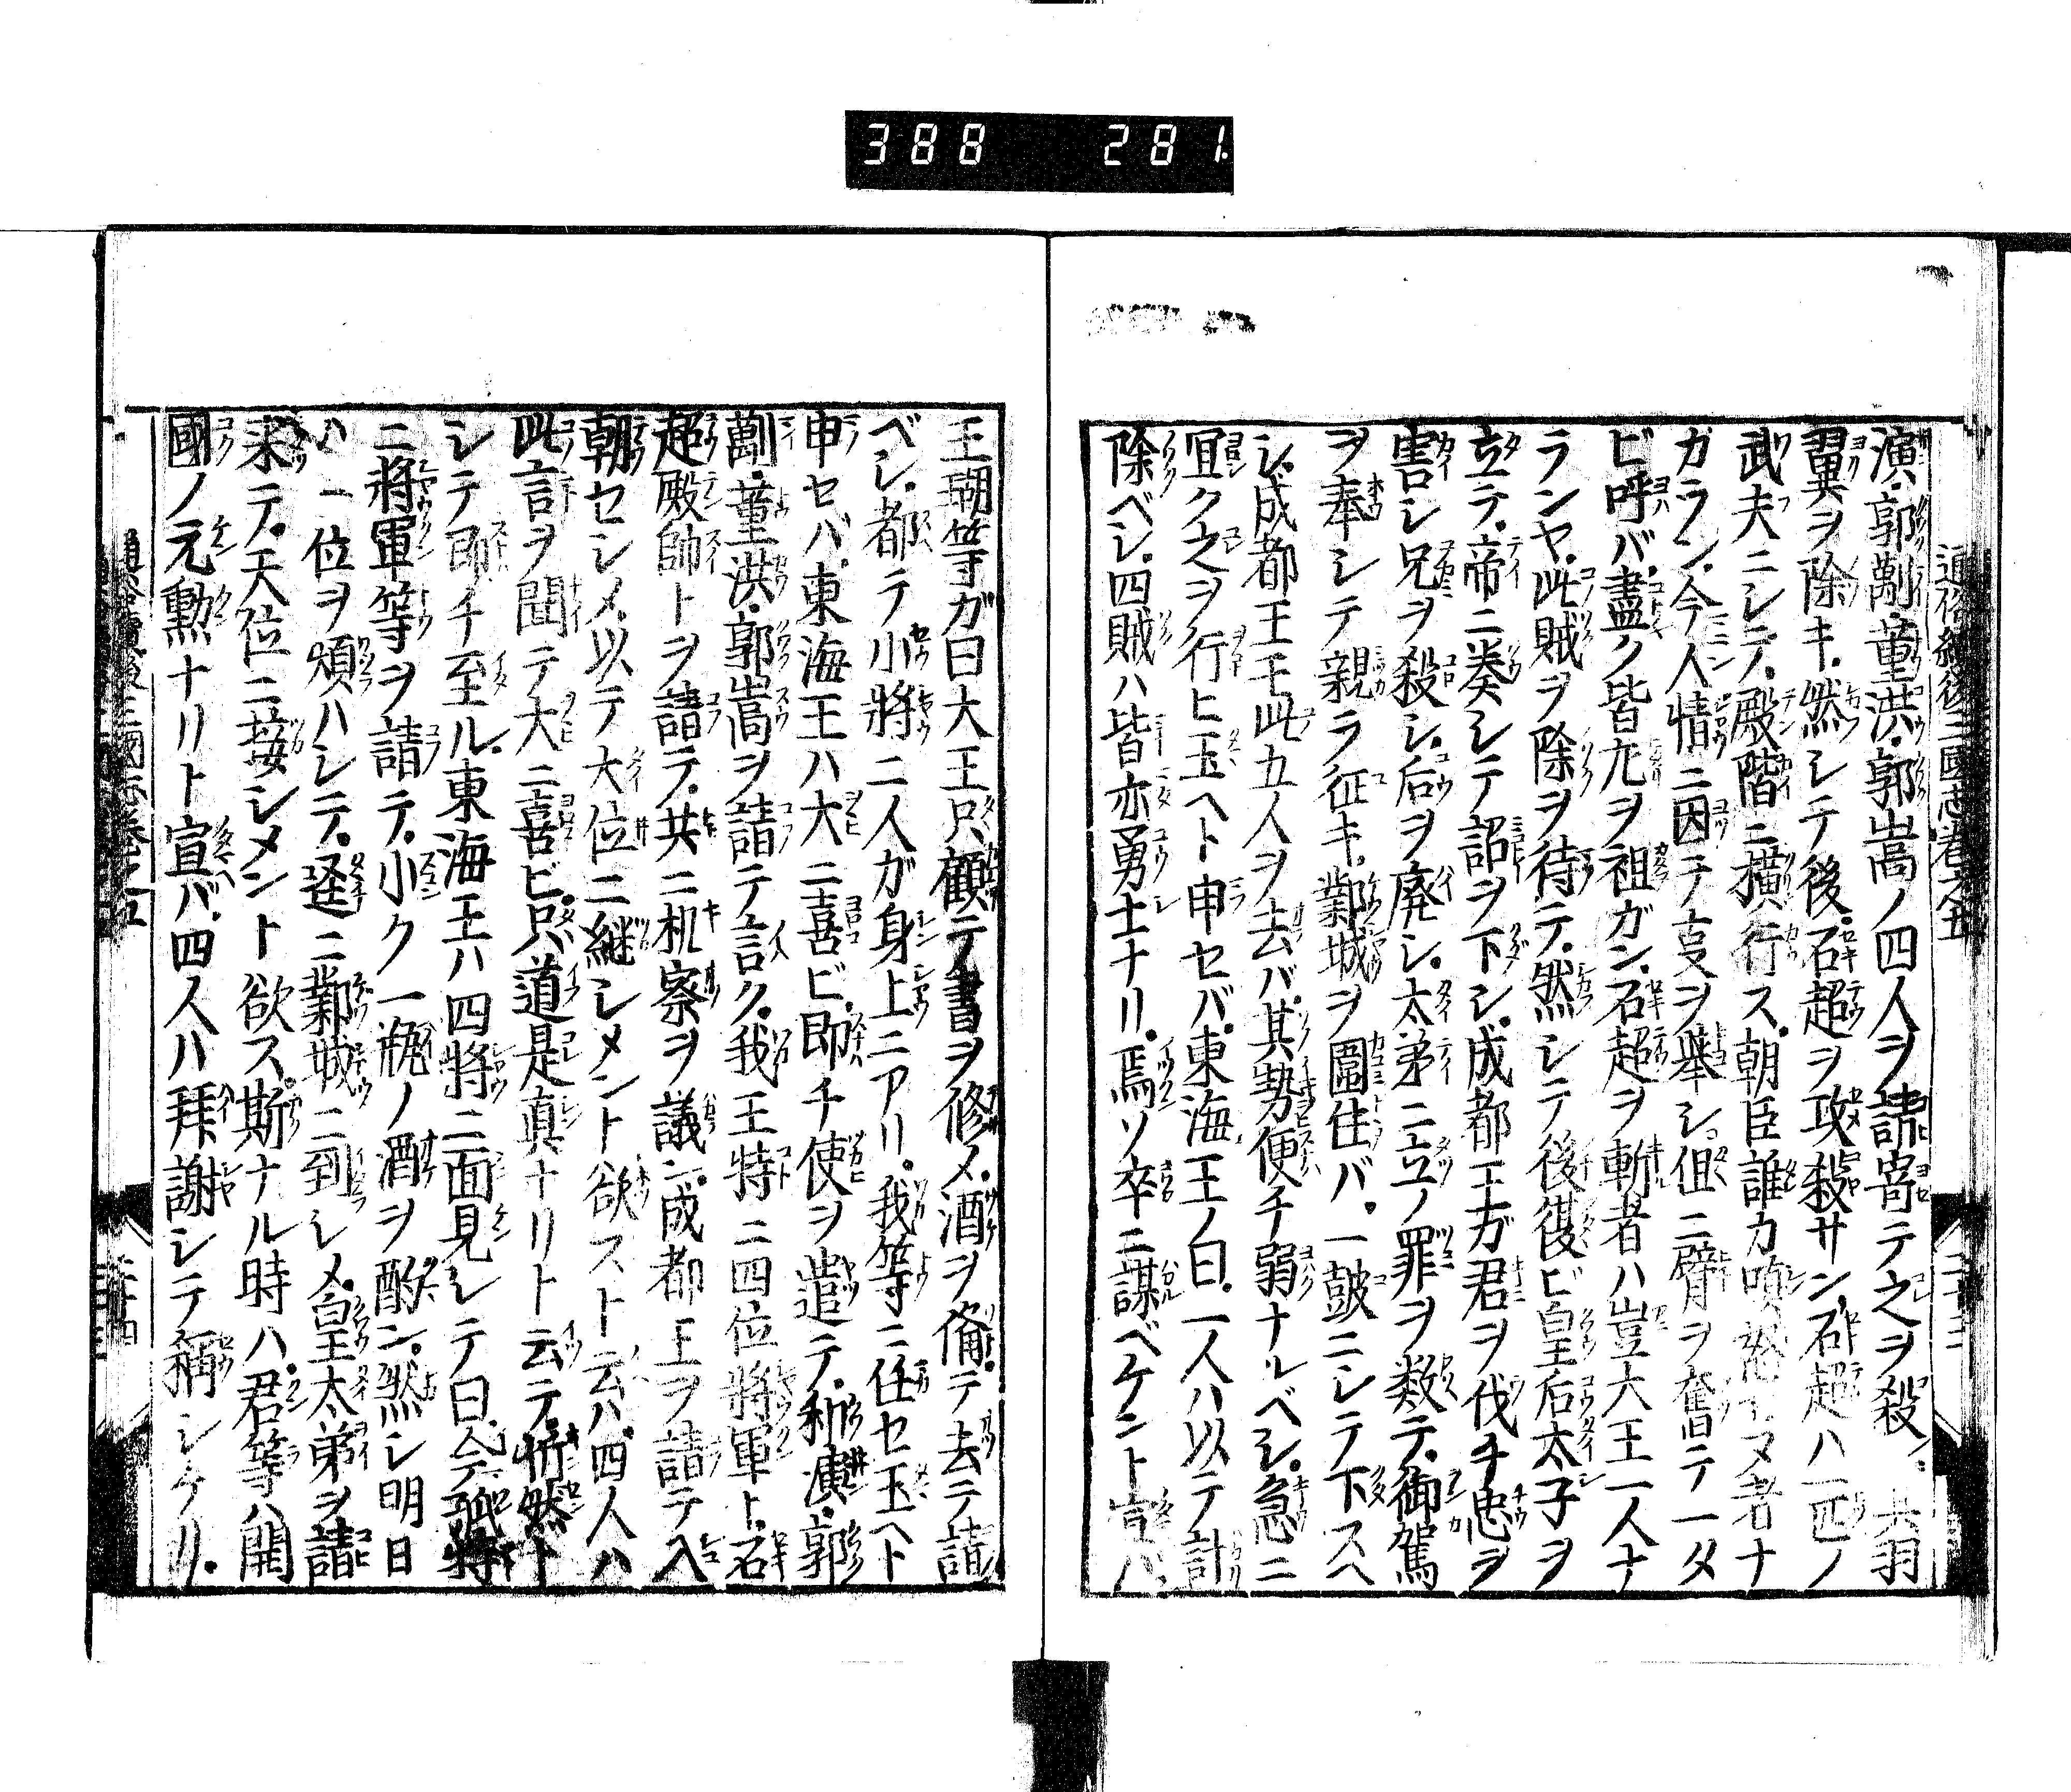 388 281
通俗續後三國志卷之五
演・郭勱・董洪・郭嵩ノ四人ヲ請寄テ之ヲ殺 其羽
翼ヲ除キ然シテ後石超ヲ攻殺サン石超ハ一匹ノ
武夫ニシテ殿階ニ横行ス朝臣誰カ 者ナ
ガラン今人情ニ因テ叓ヲ舉シ但ニ臂ヲ奮テ一タ
ビ呼バ盡ク皆左ヲ袒ガン石超ヲ斬者ハ豈大王一人ナ
ランヤ此賊ヲ除ヲ待テ然シテ後復ビ皇后太子ヲ
立テ帝ニ奏シテ詔ヲ下シ成都王ガ君ヲ伐チ忠ヲ
害シ兄ヲ殺シ后ヲ廃シ太弟ニ立ノ罪ヲ数テ御駕
ヲ奉シテ親ラ征キ鄴城ヲ圍住バ一皷ニシテ下スヘ
シ成都王此五人ヲ去バ其勢便チ弱ナルベシ急ニ
宜ク之ヲ行ヒ玉ヘト申セバ東海王ノ曰一人ハ以テ計
除ベシ四賊ハ皆亦勇士ナリ焉ソ卒ニ謀ベケント宣バ
王瑚等ガ曰大王只顧テ書ヲ修メ酒ヲ備テ去テ請
ベシ都テ小將二人ガ身上ニアリ我等ニ任セ玉ヘト
申セバ東海王ハ大ニ喜ビ即チ使ヲ遣テ和演・郭
勱・董洪・郭嵩ヲ請テ言ク我王特ニ四位將軍ト石
超殿帥トヲ請テ共ニ机察ヲ議ニ成都王ヲ請テ入
朝セシメ以テ大位ニ継シメント欲スト云バ四人ハ
此言ヲ聞テ大ニ喜ビ只道是真ナリト云テ忻然ト
シテ即チ至ル東海王ハ四將ニ面見シテ曰今孤特
ニ將軍等ヲ請テ小ク一瓶ノ酒ヲ酌ン然シ明日
ハ一位ヲ煩ハシテ逕ニ鄴城ニ到シメ皇太弟ヲ請
来テ天位ニ接シメント欲ス斯ナル時ハ君等ハ開
國ノ元勲ナリト宣バ四人ハ拜謝シテ稱シケリ